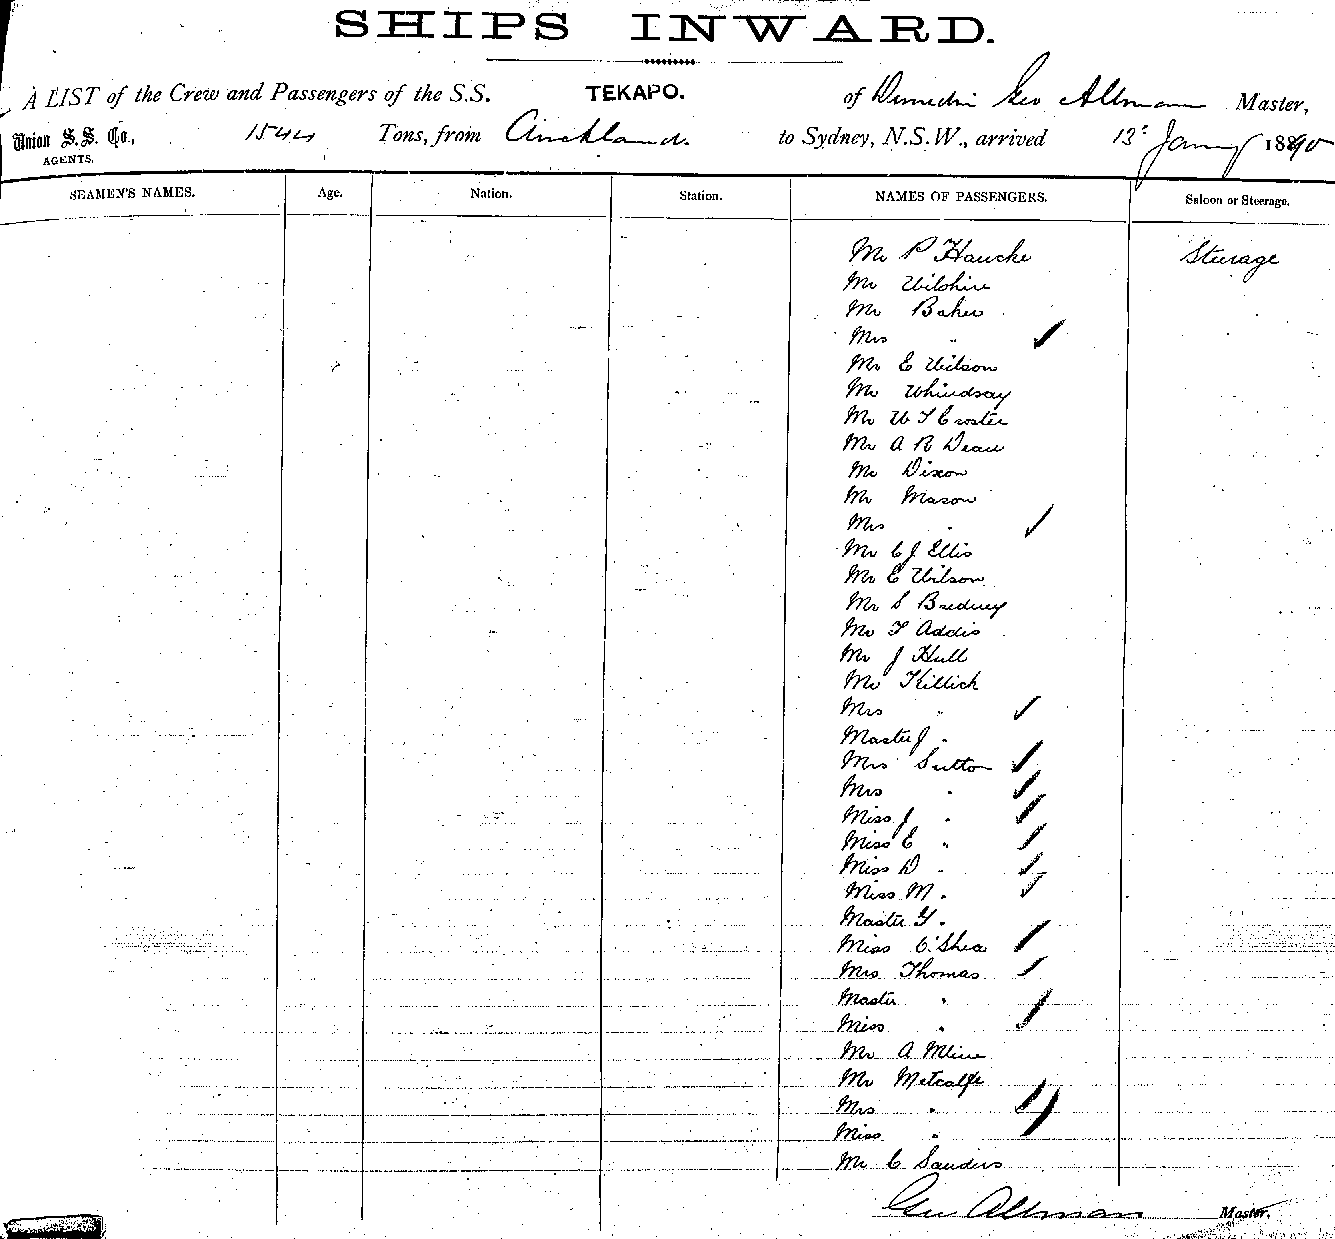 SHIPS INWARD.
A LIST of the Crew and Passengers of the S.S. TEKAPO. of Dunedin Geo Allman Master,
Union S.S. Co., 1544 Tons, from Auckland. to Sydney, N.S.W., arrived 13th January 1890
AGENTS.
SEAMEN'S NAMES. Age. Nation. Station. NAMES OF PASSENGERS. Saloon or Steerage.
Mr P Haucke Steerage
Mr Wilshire
Mr Baker
Mrs "
Mr E Wilson
Mr Whindsay
Mr W T Croster
Mr A R Dean
Mr Dixon
Mr Mason
Mrs "
Mr C J Ellis
Mr E Wilson
Mr S
Mr T Addis
Mr J Hull
Mr Killick
Mrs "
Master J "
Mrs Sutton
Mrs "
Miss J "
Miss E "
Miss D "
Miss M "
Master G "
Miss O'Shea
Mrs Thomas
Master "
Miss "
Mr A
Mr Metcalfe
Mrs "
Miss "
Mr C Sanders
Geo Allman Master.